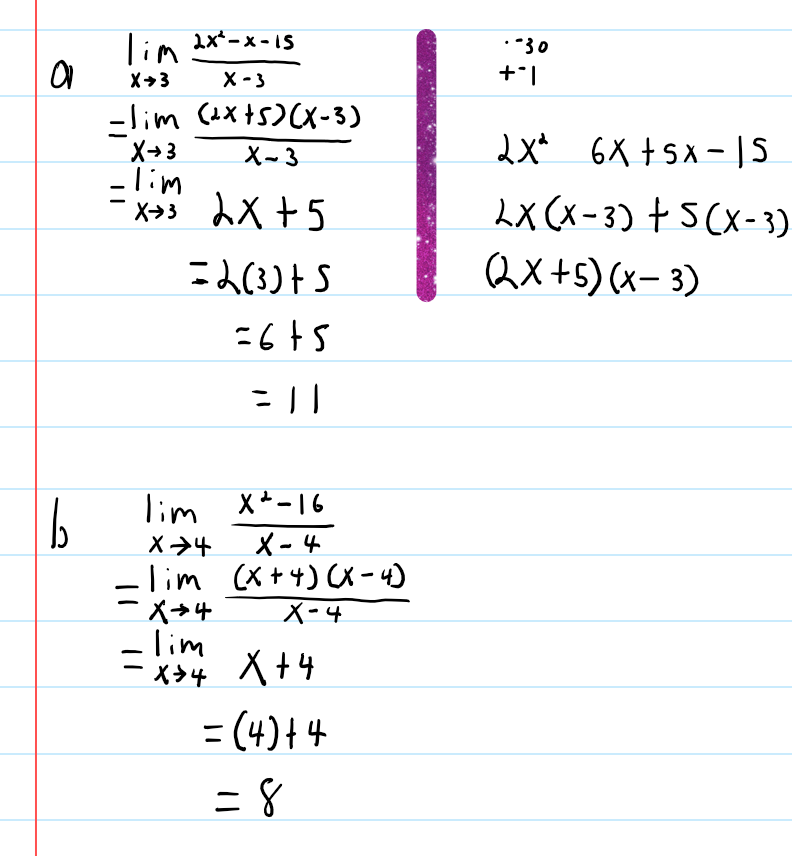 a lim x→3 (2x²-x-15)/(x-3)
= lim x→3 ((2x+5)(x-3))/(x-3)
= lim x→3 2x+5
= 2(3)+5
= 6+5
= 11
· -30
+ -1
2x² 6x+5x-15
2x(x-3)+5(x-3)
(2x+5)(x-3)
b lim x→4 (x²-16)/(x-4)
= lim x→4 ((x+4)(x-4))/(x-4)
= lim x→4 x+4
= (4)+4
= 8